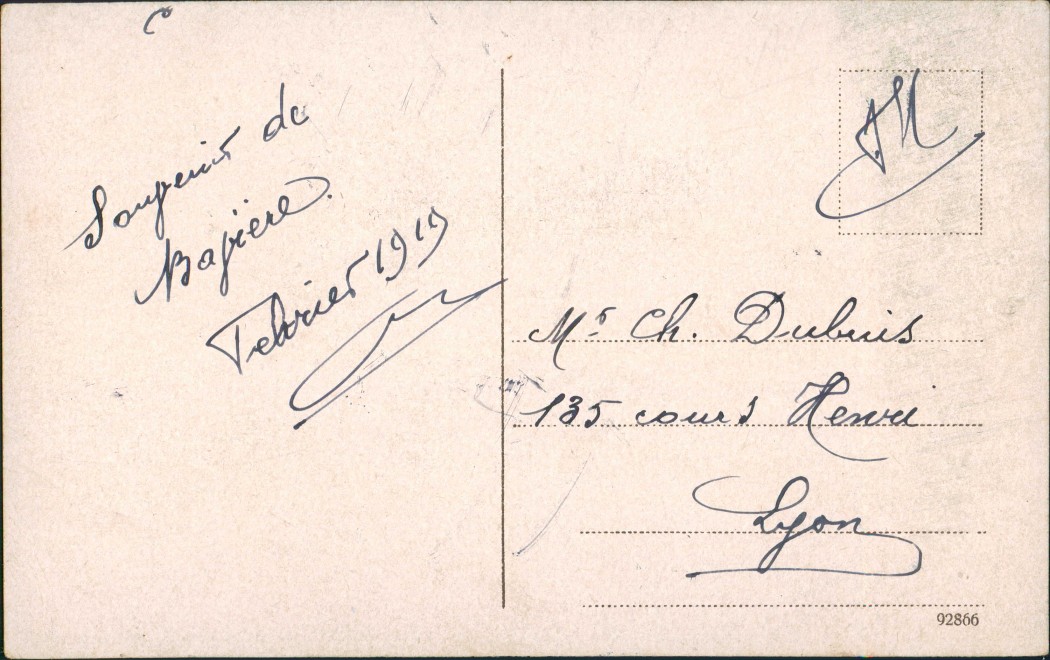 Souvenir de
Bavière.
Février 1919
Mr Ch. Dubuis
135 cours Henri
Lyon
92866